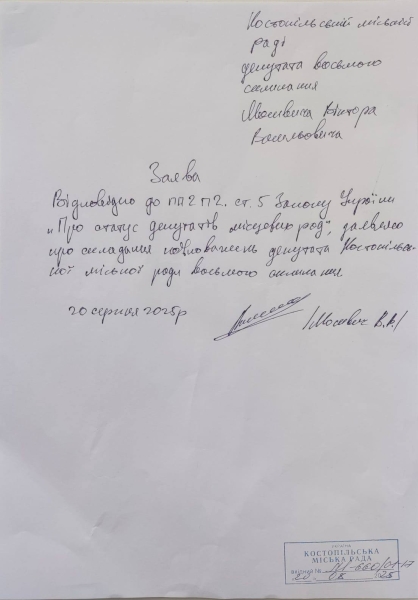 Костопільській міській
раді
депутата восьмого
скликання
Мосійчука Віктора
Васильовича
Заява
Відповідно до пп2 п2. ст. 5 Закону України
„Про статус депутатів місцевих рад", заявляю
про складання повноважень депутата Костопільсь-
кої міської ради восьмого скликання
20 серпня 2025р /В.В./
УКРАЇНА
КОСТОПІЛЬСЬКА
МІСЬКА РАДА
20 08 25